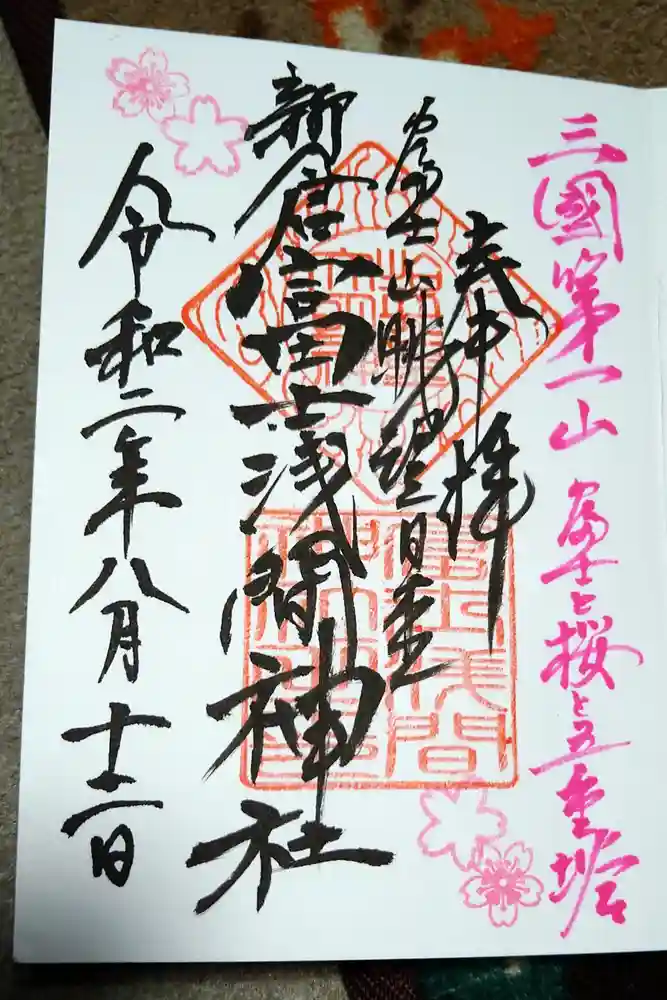 三國第一山 富士と桜と五重塔
拝
富士山眺望
新倉富士浅間神社
令和二年八月十二日